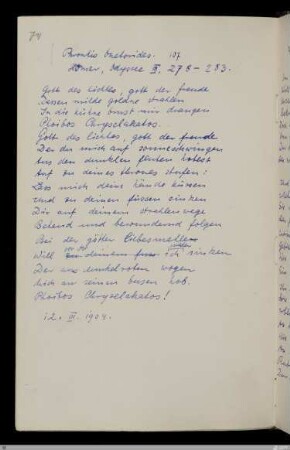 74
Homer, Odyssee III. 278–283.
Gott des lichtes, gott der freude
Dessen milde goldne strahlen
In die kühle brust mir drangen
Phoibos Chryselakatos.
Gottes des lichtes, gott der freude
Der du mich auf sonnenschwingen
Aus den dunklen fluten hobest
Auf zu deines thrones stufen:
Lass mich deine hände küssen
und zu deinen füssen sinken
Dir auf deinem strahlenwege
Betend und bewundernd folgen
Bei der götter liebesmahle
Will deinem ich sinken
Der aus dunkelroten wogen
Mich an seinen busen hob.
Phoibos Chryselakatos!
12. III. 1904.